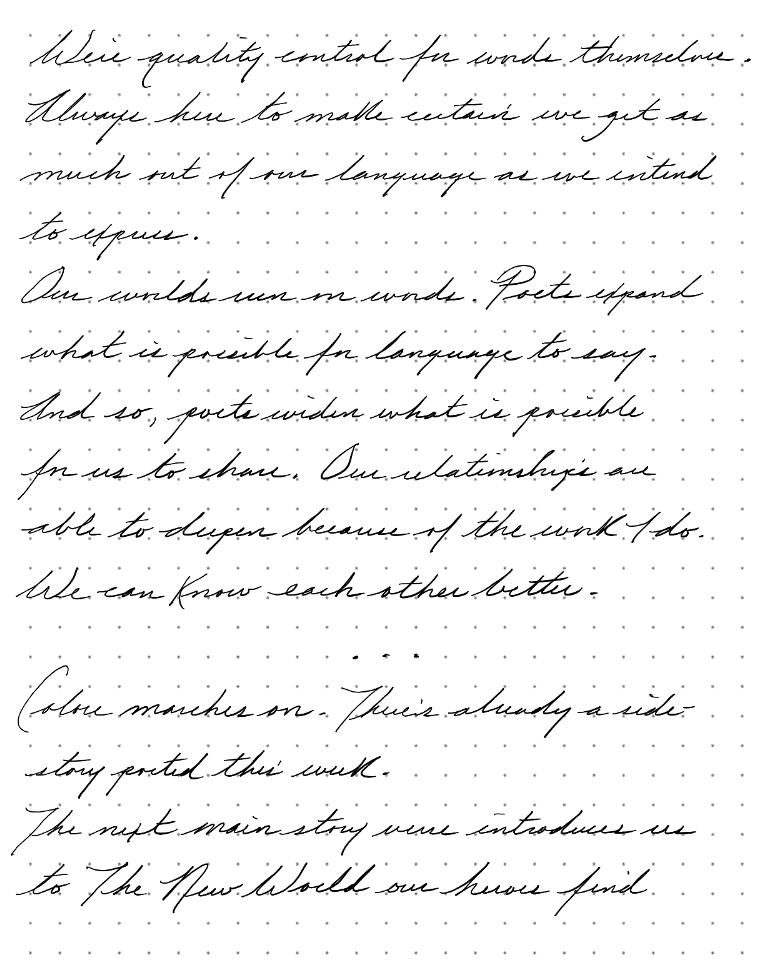 We're quality control for words themselves.
Always here to make certain we get as
much out of our language as we intend
to express.
Our worlds run on words. Poets expand
what is possible for language to say.
And so, poets widen what is possible
for us to share. Our relationships are
able to deepen because of the work I do.
We can know each other better.
...
Colors marches on. There's already a side-
story posted this week.
The next main story verse introduces us
to The New World our heroes find